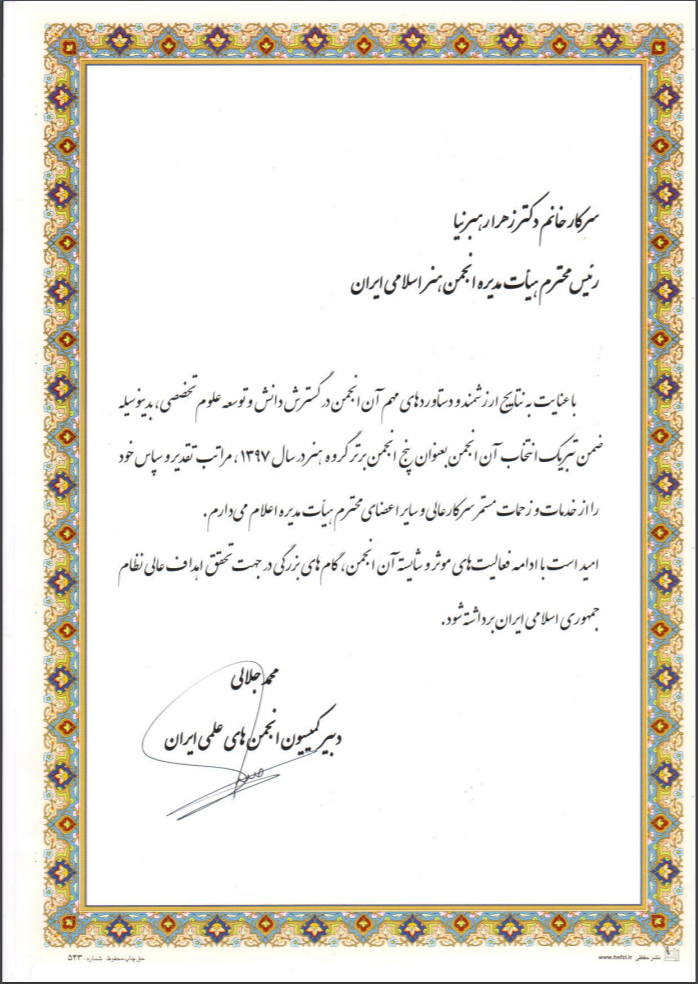 سرکار خانم دکتر زهرا رهبرنیا
رئیس محترم هیأت مدیره انجمن هنر اسلامی ایران
با عنایت به نتایج ارزشمند و دستاوردهای مهم آن انجمن در گسترش دانش و توسعه علوم تخصصی، بدینوسیله
ضمن تبریک انتخاب آن انجمن بعنوان پنج انجمن برتر گروه هنر در سال ۱۳۹۷، مراتب تقدیر و سپاس خود
را از خدمات و زحمات مستمر سرکارعالی و سایر اعضای محترم هیأت مدیره اعلام می‌دارم.
امید است با ادامه فعالیت‌های موثر و شایسته آن انجمن، گام های بزرگی در جهت تحقق اهداف عالی نظام
جمهوری اسلامی ایران برداشته شود.
محمد جلالی
دبیر کمیسیون انجمن های علمی ایران
نشر حفظی www.hefzi.ir
حق چاپ محفوظ شماره: ۵۴۳